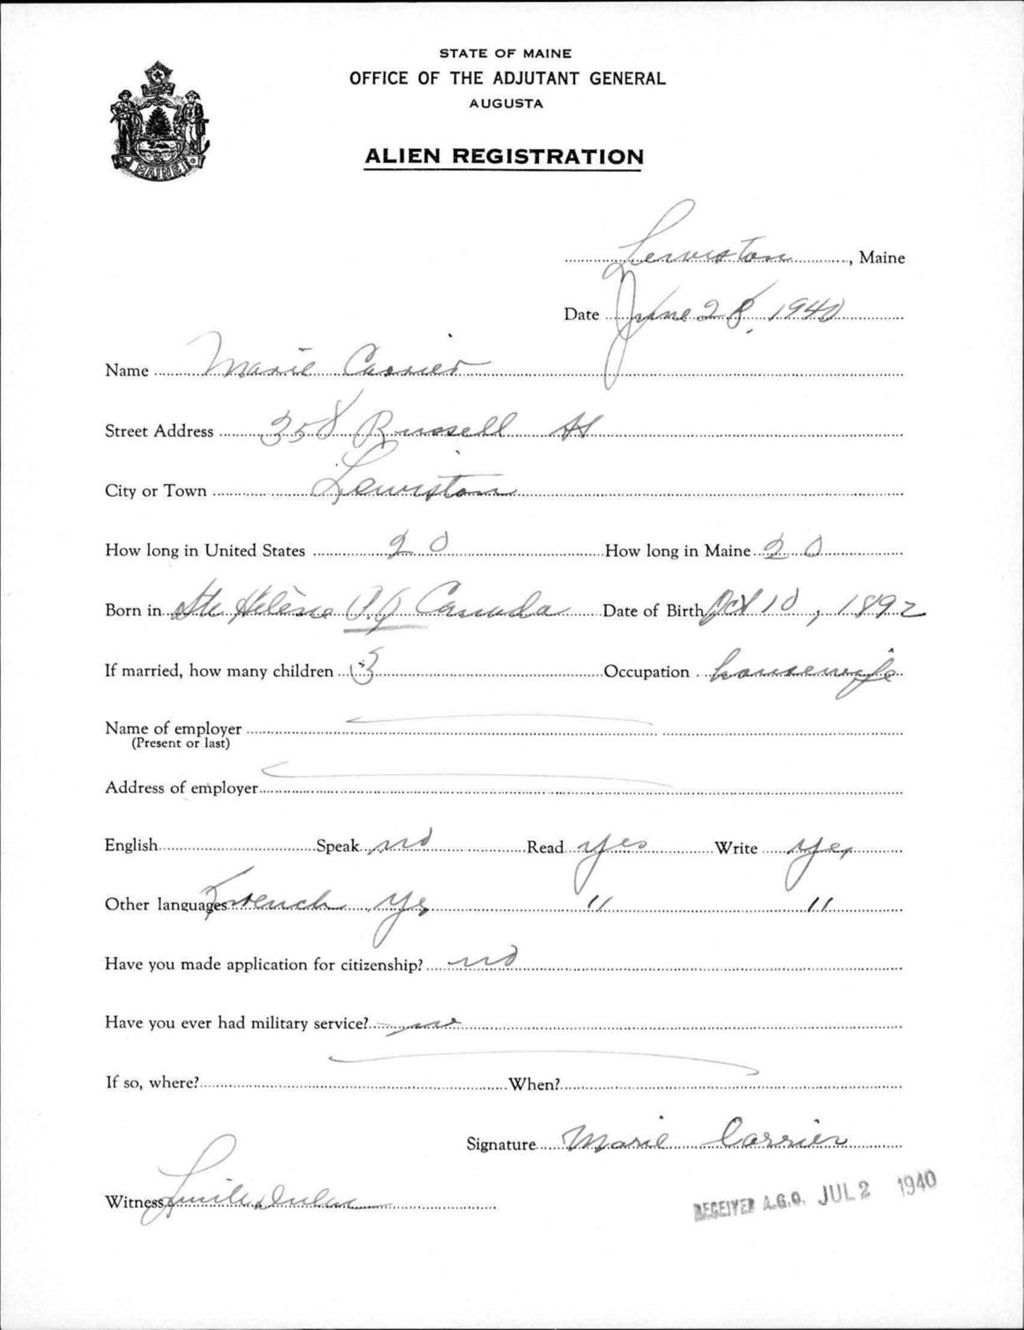 STATE OF MAINE
OFFICE OF THE ADJUTANT GENERAL
AUGUSTA
ALIEN REGISTRATION
MAINE
Lewiston, Maine
Date June 28, 1940
Name Marie Carrier
Street Address 358 Russell St
City or Town Lewiston
How long in United States 20 How long in Maine 20
Born in Ste Hélène P.Q Canada Date of Birth Oct 10, 1892
If married, how many children 3 Occupation housewife
Name of employer
(Present or last)
Address of employer
English Speak no Read yes Write yes
Other languages French yes " "
Have you made application for citizenship? no
Have you ever had military service? no
If so, where? When?
Signature Marie Carrier
Witness Lucille Dulac
RECEIVED A.G.O. JUL 2 1940